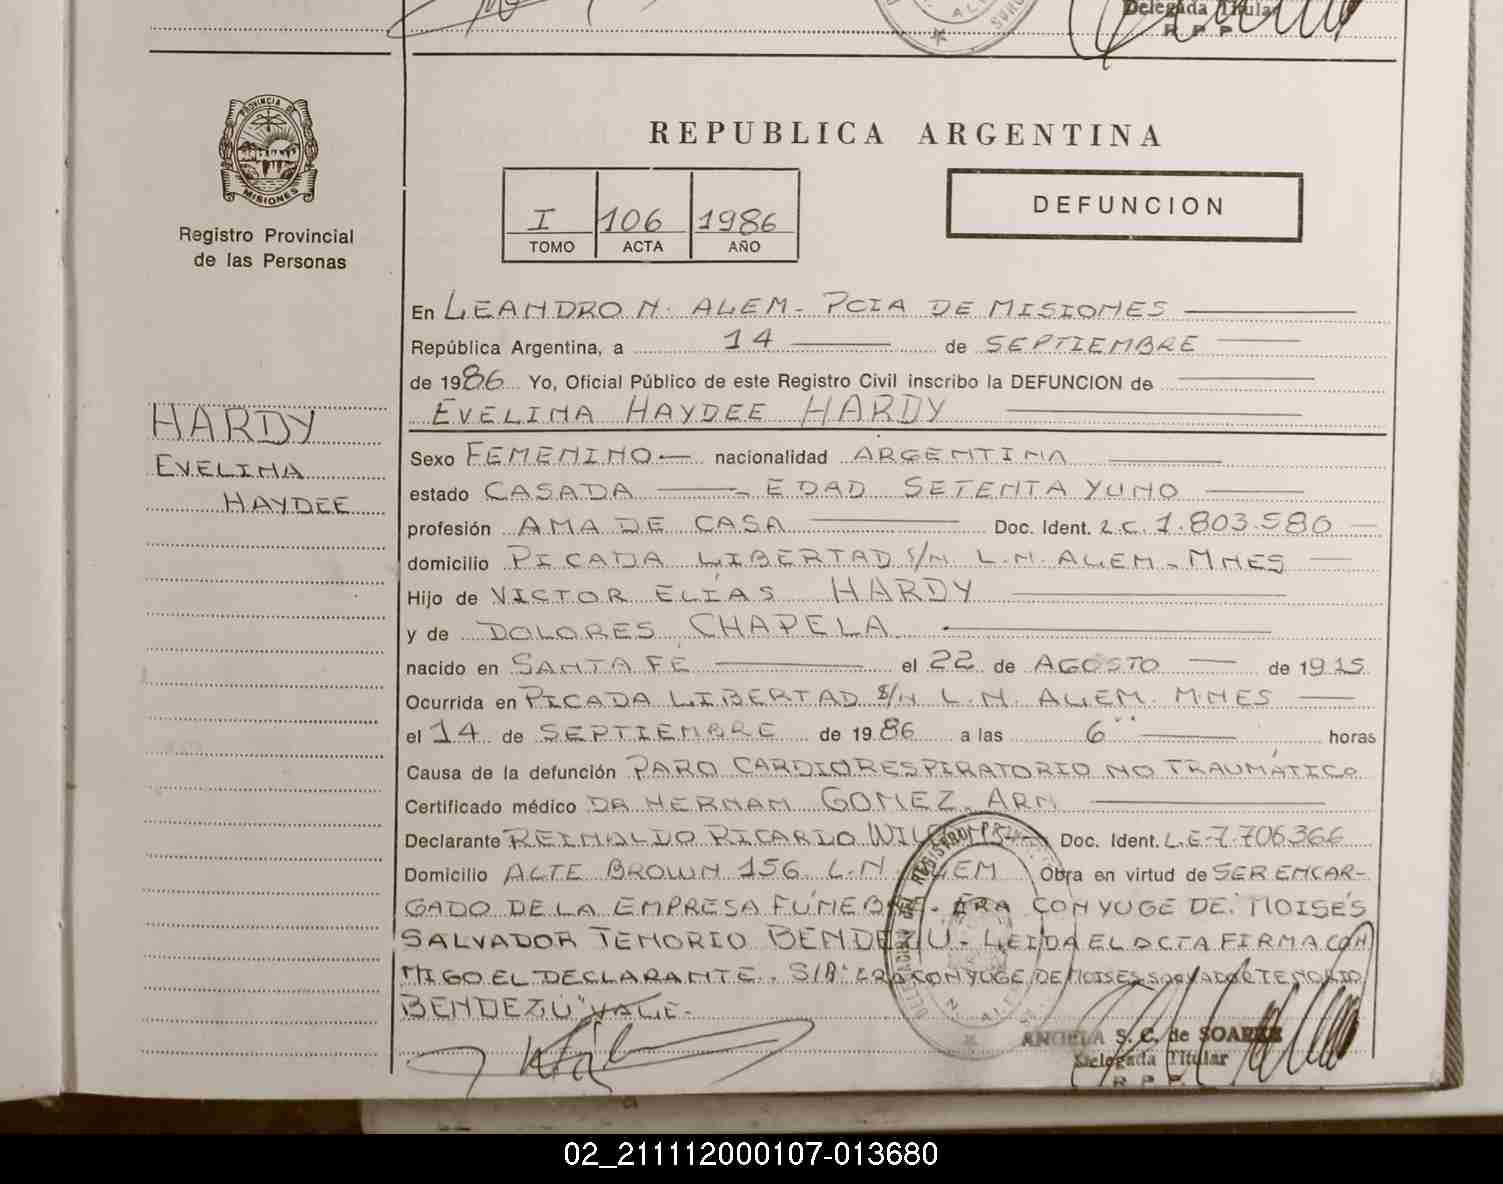 Delegada Titular
R P P
PROVINCIA DE
MISIONES
Registro Provincial
de las Personas
REPUBLICA ARGENTINA
I 106 1986
TOMO ACTA AÑO
DEFUNCION
HARDY
EVELINA
HAYDEE
En LEANDRO N. ALEM - PCIA DE MISIONES
República Argentina, a 14 de SEPTIEMBRE
de 1986 Yo, Oficial Público de este Registro Civil inscribo la DEFUNCION de
EVELINA HAYDEE HARDY
Sexo FEMENINO - nacionalidad ARGENTINA
estado CASADA - EDAD SETENTA Y UNO
profesión AMA DE CASA Doc. Ident. L.C. 1.803.586
domicilio PICADA LIBERTAD S/N L.N. ALEM - MNES
Hijo de VICTOR ELÍAS HARDY
y de DOLORES CHAPELA
nacido en SANTA FÉ el 22 de AGOSTO de 1915
Ocurrida en PICADA LIBERTAD S/N L.N. ALEM. MNES
el 14 de SEPTIEMBRE de 1986 a las 6 horas
Causa de la defunción PARO CARDIORESPIRATORIO NO TRAUMÁTICO
Certificado médico DR HERNAN GOMEZ. ARN
Declarante REINALDO RICARDO Doc. Ident. L.E-7.706.366
Domicilio ALTE BROWN 156 L.N. ALEM Obra en virtud de SER ENCAR-
GADO DE LA EMPRESA FÚNEBRE - ERA CONYUGE DE: MOISÉS
SALVADOR TENORIO BENDEZU - LEIDA EL ACTA FIRMA CON
MIGO EL DECLARANTE. S/B: ERA CONYUGE DE MOISES SALVADOR TENORIO
BENDEZÚ "VALE-
ANGELA S. C. de SOAREZ
Delegada Titular
R P P
02_211112000107-013680